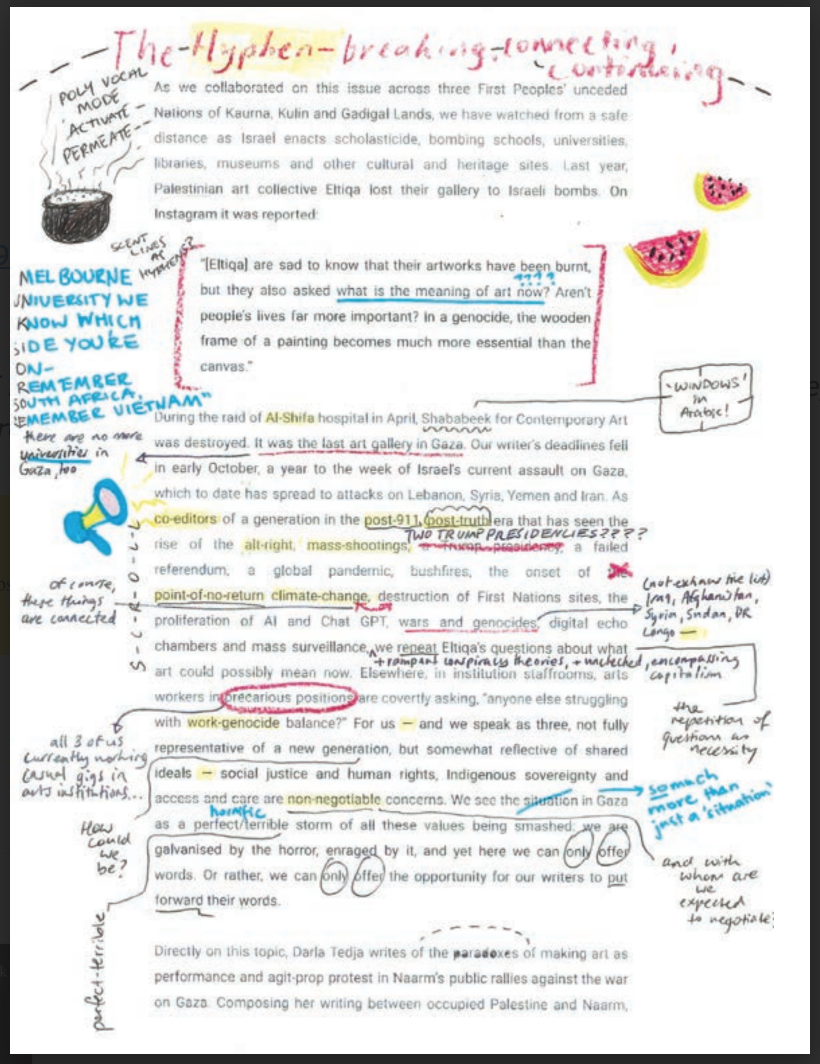 The-Hyphen-breaking-connecting,
continuing
POLY VOCAL
MODE
ACTIVATE-
PERMEATE--
As we collaborated on this issue across three First Peoples' unceded
Nations of Kaurna, Kulin and Gadigal Lands, we have watched from a safe
distance as Israel enacts scholasticide, bombing schools, universities,
libraries, museums and other cultural and heritage sites. Last year,
Palestinian art collective Eltiqa lost their gallery to Israeli bombs. On
Instagram it was reported:
SCENT
LINES
AS
HYPHENS?
"[Eltiqa] are sad to know that their artworks have been burnt,
????
but they also asked what is the meaning of art now? Aren't
people's lives far more important? In a genocide, the wooden
frame of a painting becomes much more essential than the
canvas."
MELBOURNE
UNIVERSITY WE
KNOW WHICH
SIDE YOU'RE
ON-
REMEMBER
SOUTH AFRICA,
REMEMBER VIETNAM"
'WINDOWS'
in
Arabic!
there are no more
universities in
Gaza, too
During the raid of Al-Shifa hospital in April, Shababeek for Contemporary Art
was destroyed. It was the last art gallery in Gaza. Our writer's deadlines fell
in early October, a year to the week of Israel's current assault on Gaza,
which to date has spread to attacks on Lebanon, Syria, Yemen and Iran. As
co-editors of a generation in the post-911, post-truth era that has seen the
TWO TRUMP PRESIDENCIES????
rise of the alt-right, mass-shootings, a Trump presidency, a failed
referendum, a global pandemic, bushfires, the onset of the
point-of-no-return climate-change, destruction of First Nations sites, the
proliferation of AI and Chat GPT, wars and genocides, digital echo
chambers and mass surveillance, we repeat Eltiqa's questions about what
+ rampant conspiracy theories, + unchecked, encompassing
capitalism
art could possibly mean now. Elsewhere, in institution staffrooms, arts
workers in precarious positions are covertly asking, "anyone else struggling
with work-genocide balance?" For us – and we speak as three, not fully
representative of a new generation, but somewhat reflective of shared
ideals – social justice and human rights, Indigenous sovereignty and
access and care are non-negotiable concerns. We see the situation in Gaza
horrific
as a perfect/terrible storm of all these values being smashed: we are
galvanised by the horror, enraged by it, and yet here we can only offer
words. Or rather, we can only offer the opportunity for our writers to put
forward their words.
S-C-R-O-L-L
of course,
these things
are connected
(not exhaustive list)
Iraq, Afghanistan,
Syria, Sudan, DR
Congo –
the
repetition of
questions as
necessity
all 3 of us
currently working
casual gigs in
arts institutions...
so much
more than
just a 'situation'
How
could
we
be?
and with
whom are
we
expected
to negotiate
perfect-terrible
Directly on this topic, Darla Tedja writes of the paradoxes of making art as
performance and agit-prop protest in Naarm's public rallies against the war
on Gaza. Composing her writing between occupied Palestine and Naarm,